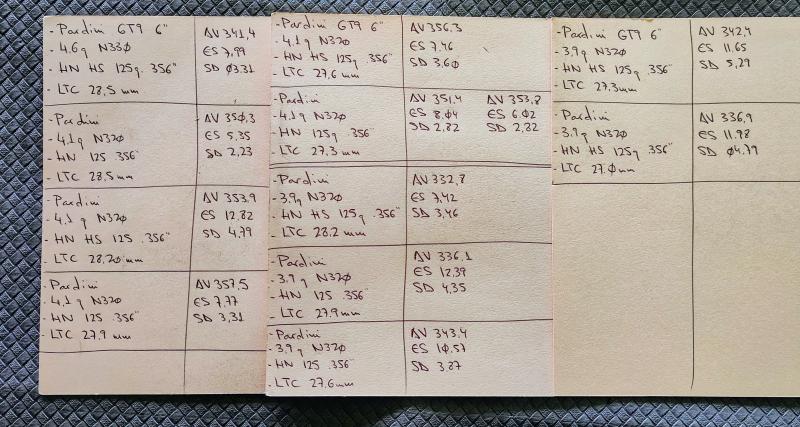 - Pardini GT9 6"
- 4.6g N33Ø
- HN HS 125g .356"
- LTC 28,5 mm
ΔV 341,4
ES 7,99
SD Ø3.31
- Pardini
- 4,1g N32Ø
- HN 125 .356"
- LTC 28,5mm
ΔV 35Ø,3
ES 5,35
SD 2,23
- Pardini
- 4.1 g N32Ø
- HN HS 125 .356"
- LTC 28,2Ø mm
ΔV 353,9
ES 12,82
SD 4,79
Pardini
- 4,1 g N32Ø
- HN 125 .356"
- LTC 27.9 mm
ΔV 357,5
ES 7,77
SD 3,31
- Pardini GT9 6"
- 4.1g N32Ø
- HN HS 125g .356"
- LTC 27,6 mm
ΔV 356,3
ES 7,46
SD 3,6Ø
- Pardini
- 4.1g N32Ø
- HN HS 125g .356"
- LTC 27.3 mm
ΔV 351,4 ΔV 353,8
ES 8,Ø4 ES 6,Ø2
SD 2,82 SD 2,82
- Pardini
- 3,9g N32Ø
- HN HS 125g .356"
- LTC 28.2 mm
ΔV 332,8
ES 7,42
SD 3,46
- Pardini
- 3.9g N32Ø
- HN 125 .356"
- LTC 27.9mm
ΔV 336,1
ES 12,39
SD 4,35
- Pardini
- 3.9g N32Ø
- HN 125 .356"
- LTC 27.6mm
ΔV 343,4
ES 1Ø,57
SD 3,87
- Pardini GT9 6"
- 3,9g N32Ø
- HN HS 125g .356"
- LTC 27.3mm
ΔV 342,4
ES 11,65
SD 5,29
- Pardini
- 3.9g N32Ø
- HN HS 125g .356"
- LTC 27.Ømm
ΔV 336,9
ES 11,98
SD Ø4.79